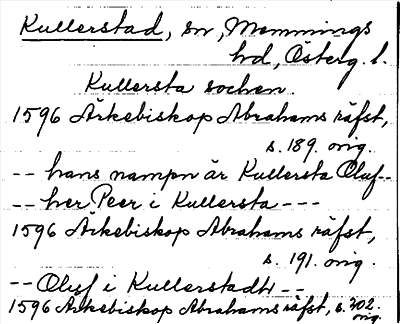 Kullerstad, sn, Memmings
hd, Österg. l.
Kullersta sochen.
1596 Ärkebiskop Abrahams räfst,
s. 189. orig.
-- hans nampn är Kullersta Oluf--
-- her Peer i Kullersta ---
1596 Ärkebiskop Abrahams räfst,
s. 191. orig.
-- Oluf i Kullerstadh --
1596 Ärkebiskop Abrahams räfst, s. 202.
orig.